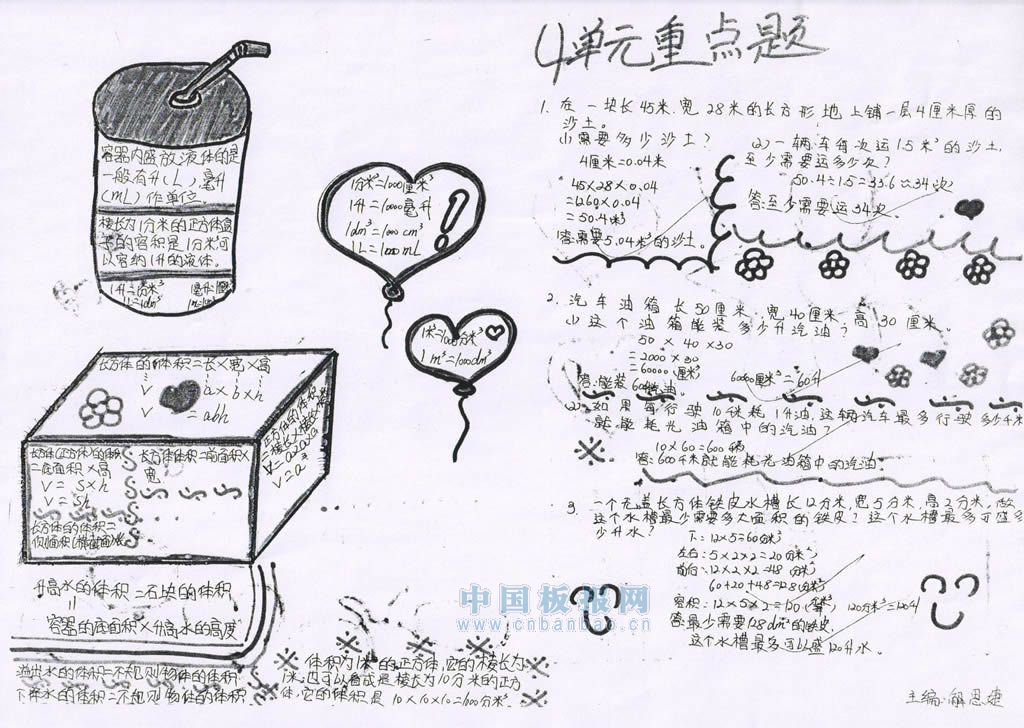 4单元重点题
容器内盛放液体的是
一般有升(L)，毫升
(mL)作单位。
棱长为1分米的正方体盒
子的容积是1分米³可
以容纳1升的液体。
1升=1分米³
1L=1dm³
1分米³=1000厘米³
1升=1000毫升
1dm³=1000 cm³
1L=1000 mL
!
1米³=1000分米³
1m³=1000dm³
长方体的体积=长×宽×高
V = a×b×h
V = abh
长方体(正方体)的体积
=底面积×高
V = S×h
V = Sh
长方体的体积=
侧面积(横截面)×长
正方体的体积
=棱长×棱长×棱长
V=a×a×a
V=a³
升高水的体积=石块的体积
=
容器的底面积×升高水的高度
溢出水的体积=不规则物体的体积
下降水的体积=不规则物体的体积
※ 体积为1米³的正方体,它的棱长为
1米,也可以看成是棱长为10分米的正方
体,它的体积是10×10×10=1000分米³
1. 在一块长45米,宽28米的长方形地上铺一层4厘米厚的
沙土。
(1)需要多少沙土?
4厘米=0.04米
45×28×0.04
=1260×0.04
=50.4米³
答:需要5.04米³的沙土。
(2)一辆车每次运1.5米³的沙土,
至少需要运多少次?
50.4÷1.5=33.6≈34次
答:至少需要运34次。
2. 汽车油箱长50厘米,宽40厘米,高30厘米。
(1)这个油箱能装多少升汽油?
50×40×30
=2000×30
=60000(厘米³)
60000厘米³=60升
答:能装60升汽油。
(2)如果每行驶10千米耗1升油,这辆汽车最多行驶多少千米
就能耗光油箱中的汽油?
10×60=600千米
答:600千米就能耗光油箱中的汽油。
3. 一个无盖长方体铁皮水槽长12分米,宽5分米,高2分米,做
这个水槽最少需要多大面积的铁皮?这个水槽最多可盛多
少升水?
下:12×5=60分米²
左右:5×2×2=20分米²
前后:12×2×2=48分米²
60+20+48=128分米²
容积:12×5×2=120(分米³) 120分米³=120升
答:最少需要128dm²的铁皮,
这个水槽最多可以盛120升水。
中国板报网
www.cnbanbao.cn
主编:解恩婕